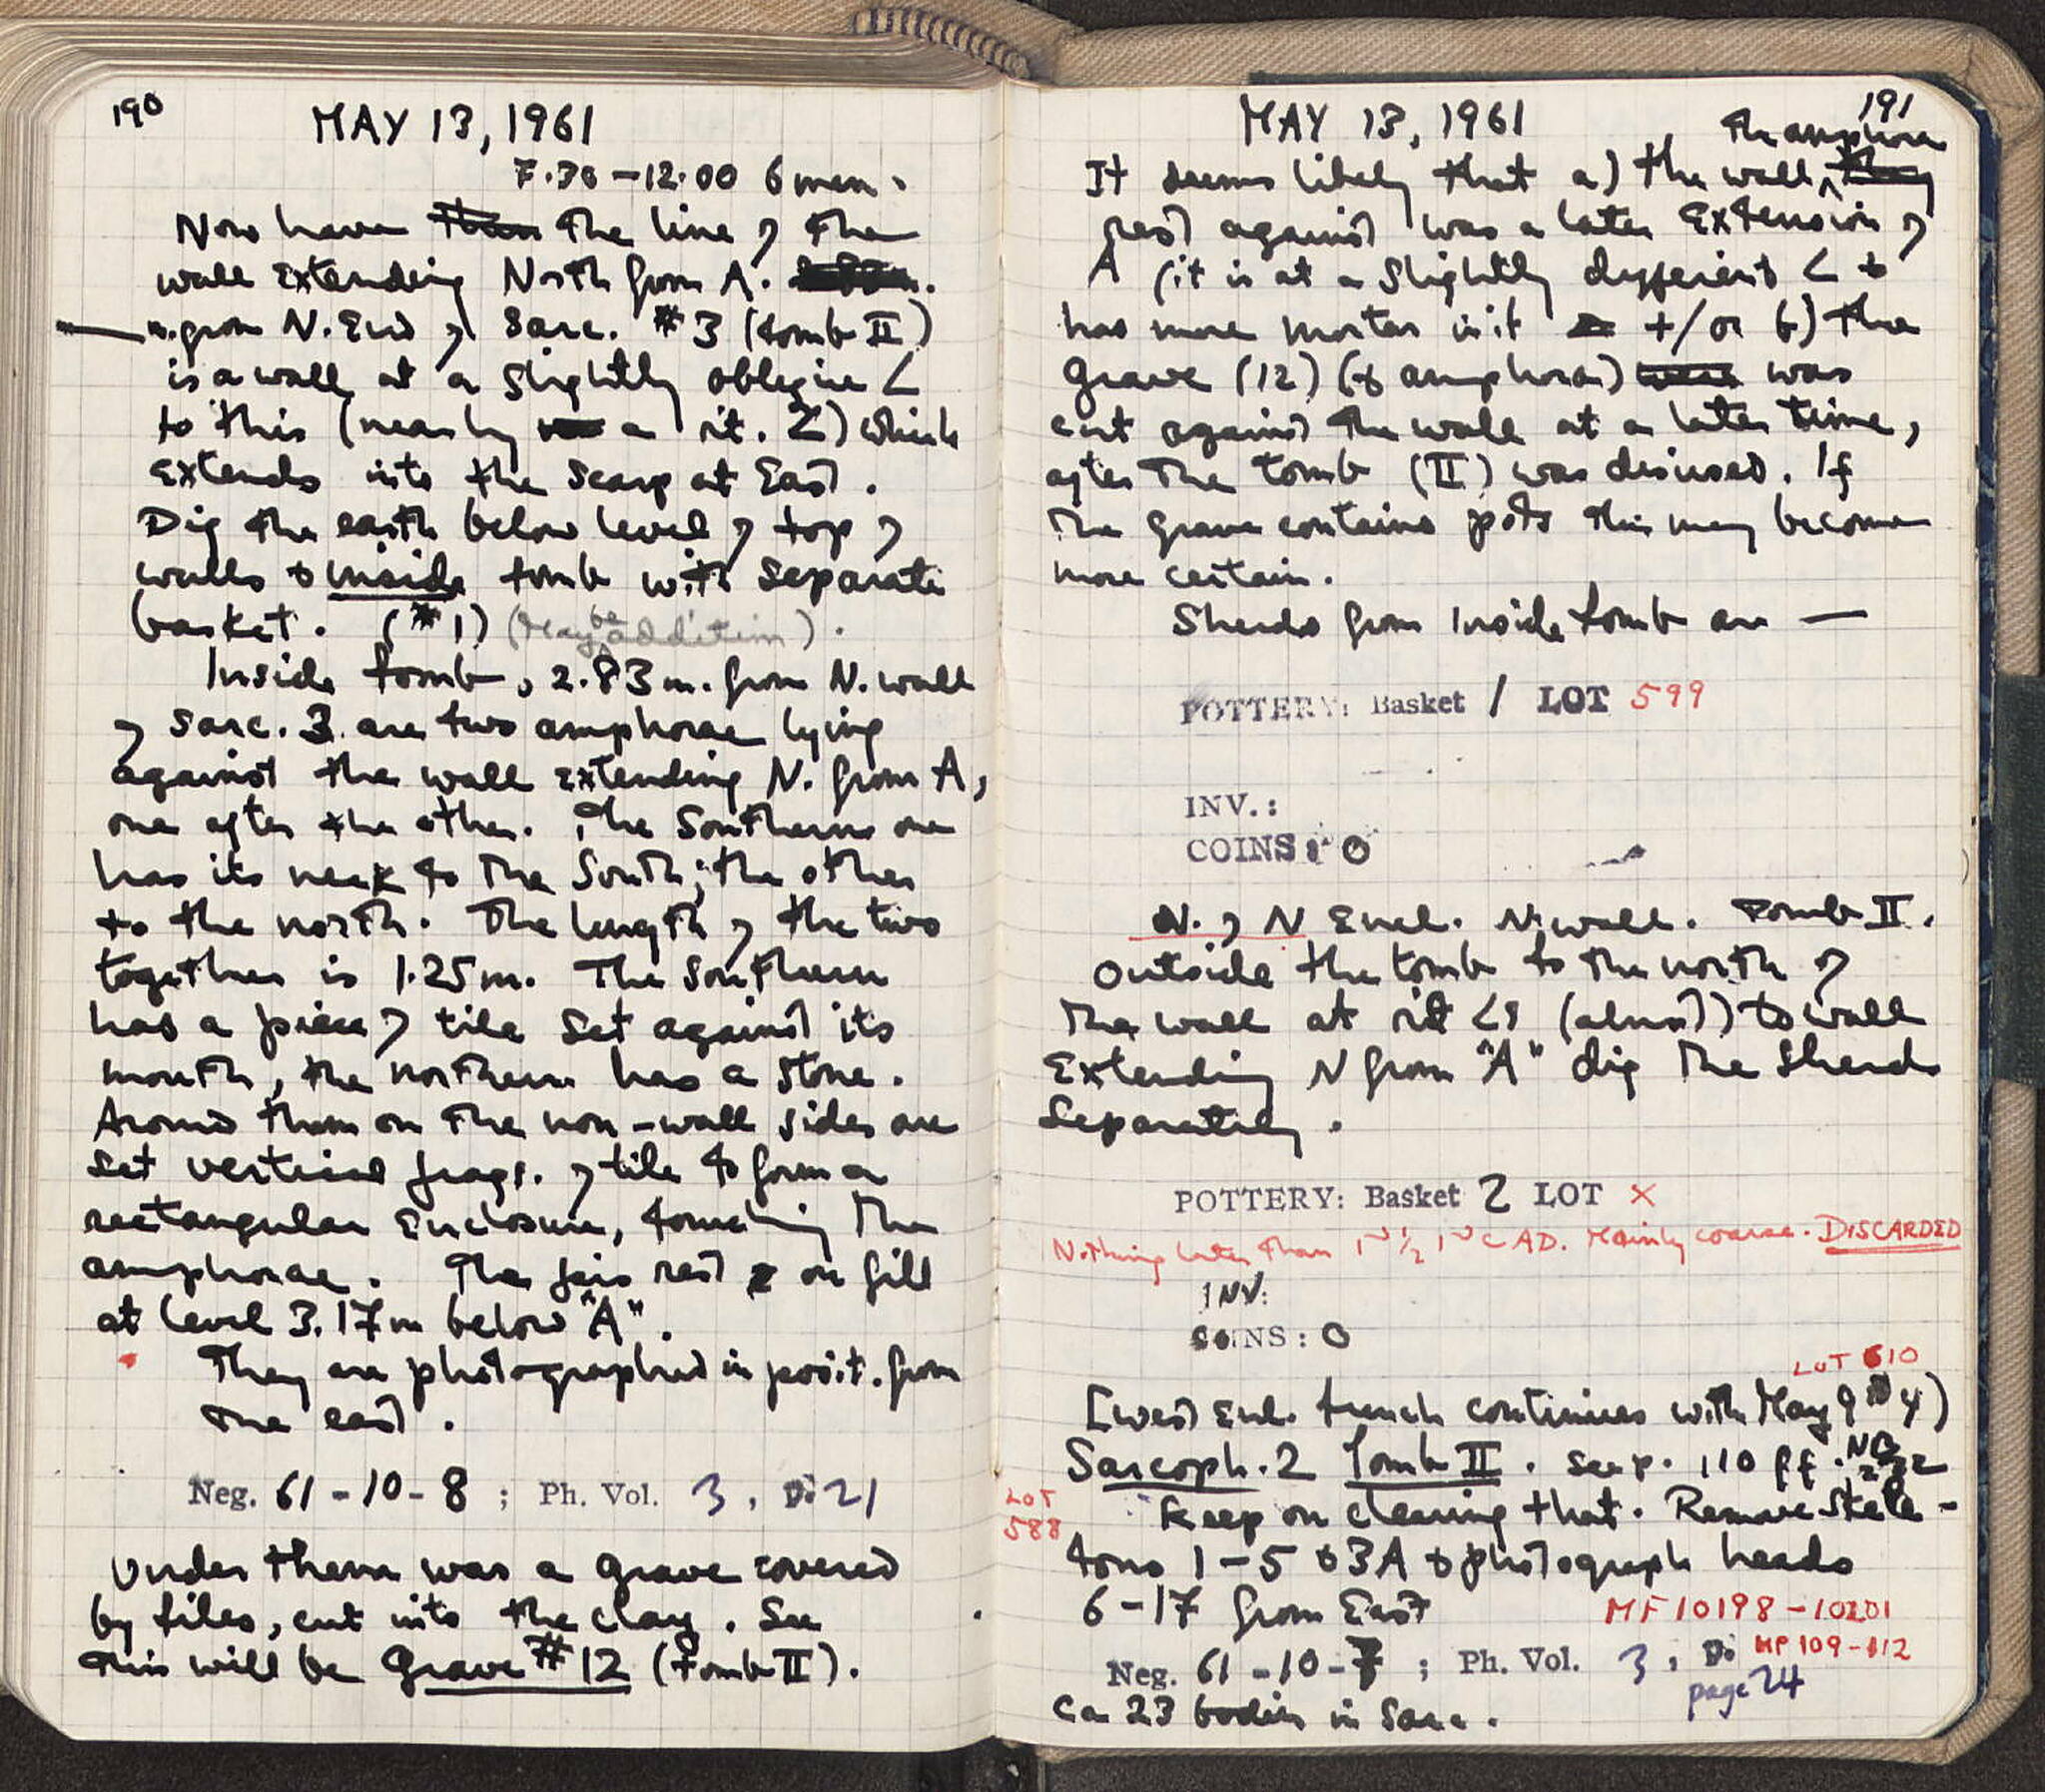 190
MAY 13, 1961
7.30 – 12.00 6 men.
Now have the line of the
wall extending North from A.
m. from N. End of Sarc. #3 (tomb II)
is a wall at a slightly oblique <
to this (nearly a rt. <) which
extends into the scarp at East.
Dig the earth below level of top of
walls & inside tomb with separate
basket. (#1) (May be addition).
Inside tomb, 2.83 m. from N. wall
of Sarc. 3 are two amphorae lying
against the wall extending N. from A,
one after the other. The Southern one
has its neck to the South; the other
to the north. The length of the two
together is 1.25 m. The Southern
has a piece of tile set against its
mouth, the northern has a stone.
Around them on the non-wall sides are
set vertical frags. of tile to form a
rectangular enclosure, touching the
amphorae. The jars rest on fill
at level 3.17 m below "A".
They are photographed in posit. from
the east.
Neg. 61-10-8 ; Ph. Vol. 3, 21
Under them was a grave covered
by tiles, cut into the clay. See
this will be Grave #12 (tomb II).
191
MAY 13, 1961
The amphorae
It seems likely that a) the wall ^ they
rest against was a later extension of
A (it is at a slightly different < &
has more mortar in it +/or b) the
grave (12) (& amphorae) was
cut against the wall at a later time,
after the tomb (II) was disused. If
the grave contains pots this may become
more certain.
Sherds from Inside tomb are —
POTTERY: Basket 1 LOT 599
INV.:
COINS: 0
N. of N Encl. N. wall. Tomb II.
Outside the tomb to the north of
the wall at rt <s (almost) to wall
Extending N from "A" dig the sherds
separately.
POTTERY: Basket 2 LOT X
Nothing later than 1st ½ 1st C AD. Mainly coarse. DISCARDED
INV:
COINS: 0
LOT 610
[West Encl. trench continues with May 9 4)
Sarcoph. 2 Tomb II. see p. 110 ff. NB
LOT
588
Keep on cleaning that. Remove skele-
tons 1-5 & 3A & photograph heads
6-17 from East
MF 10198-10201
Neg. 61-10-7 ; Ph. Vol. 3, MP 109-112
page 24
Ca 23 bodies in Sarc.